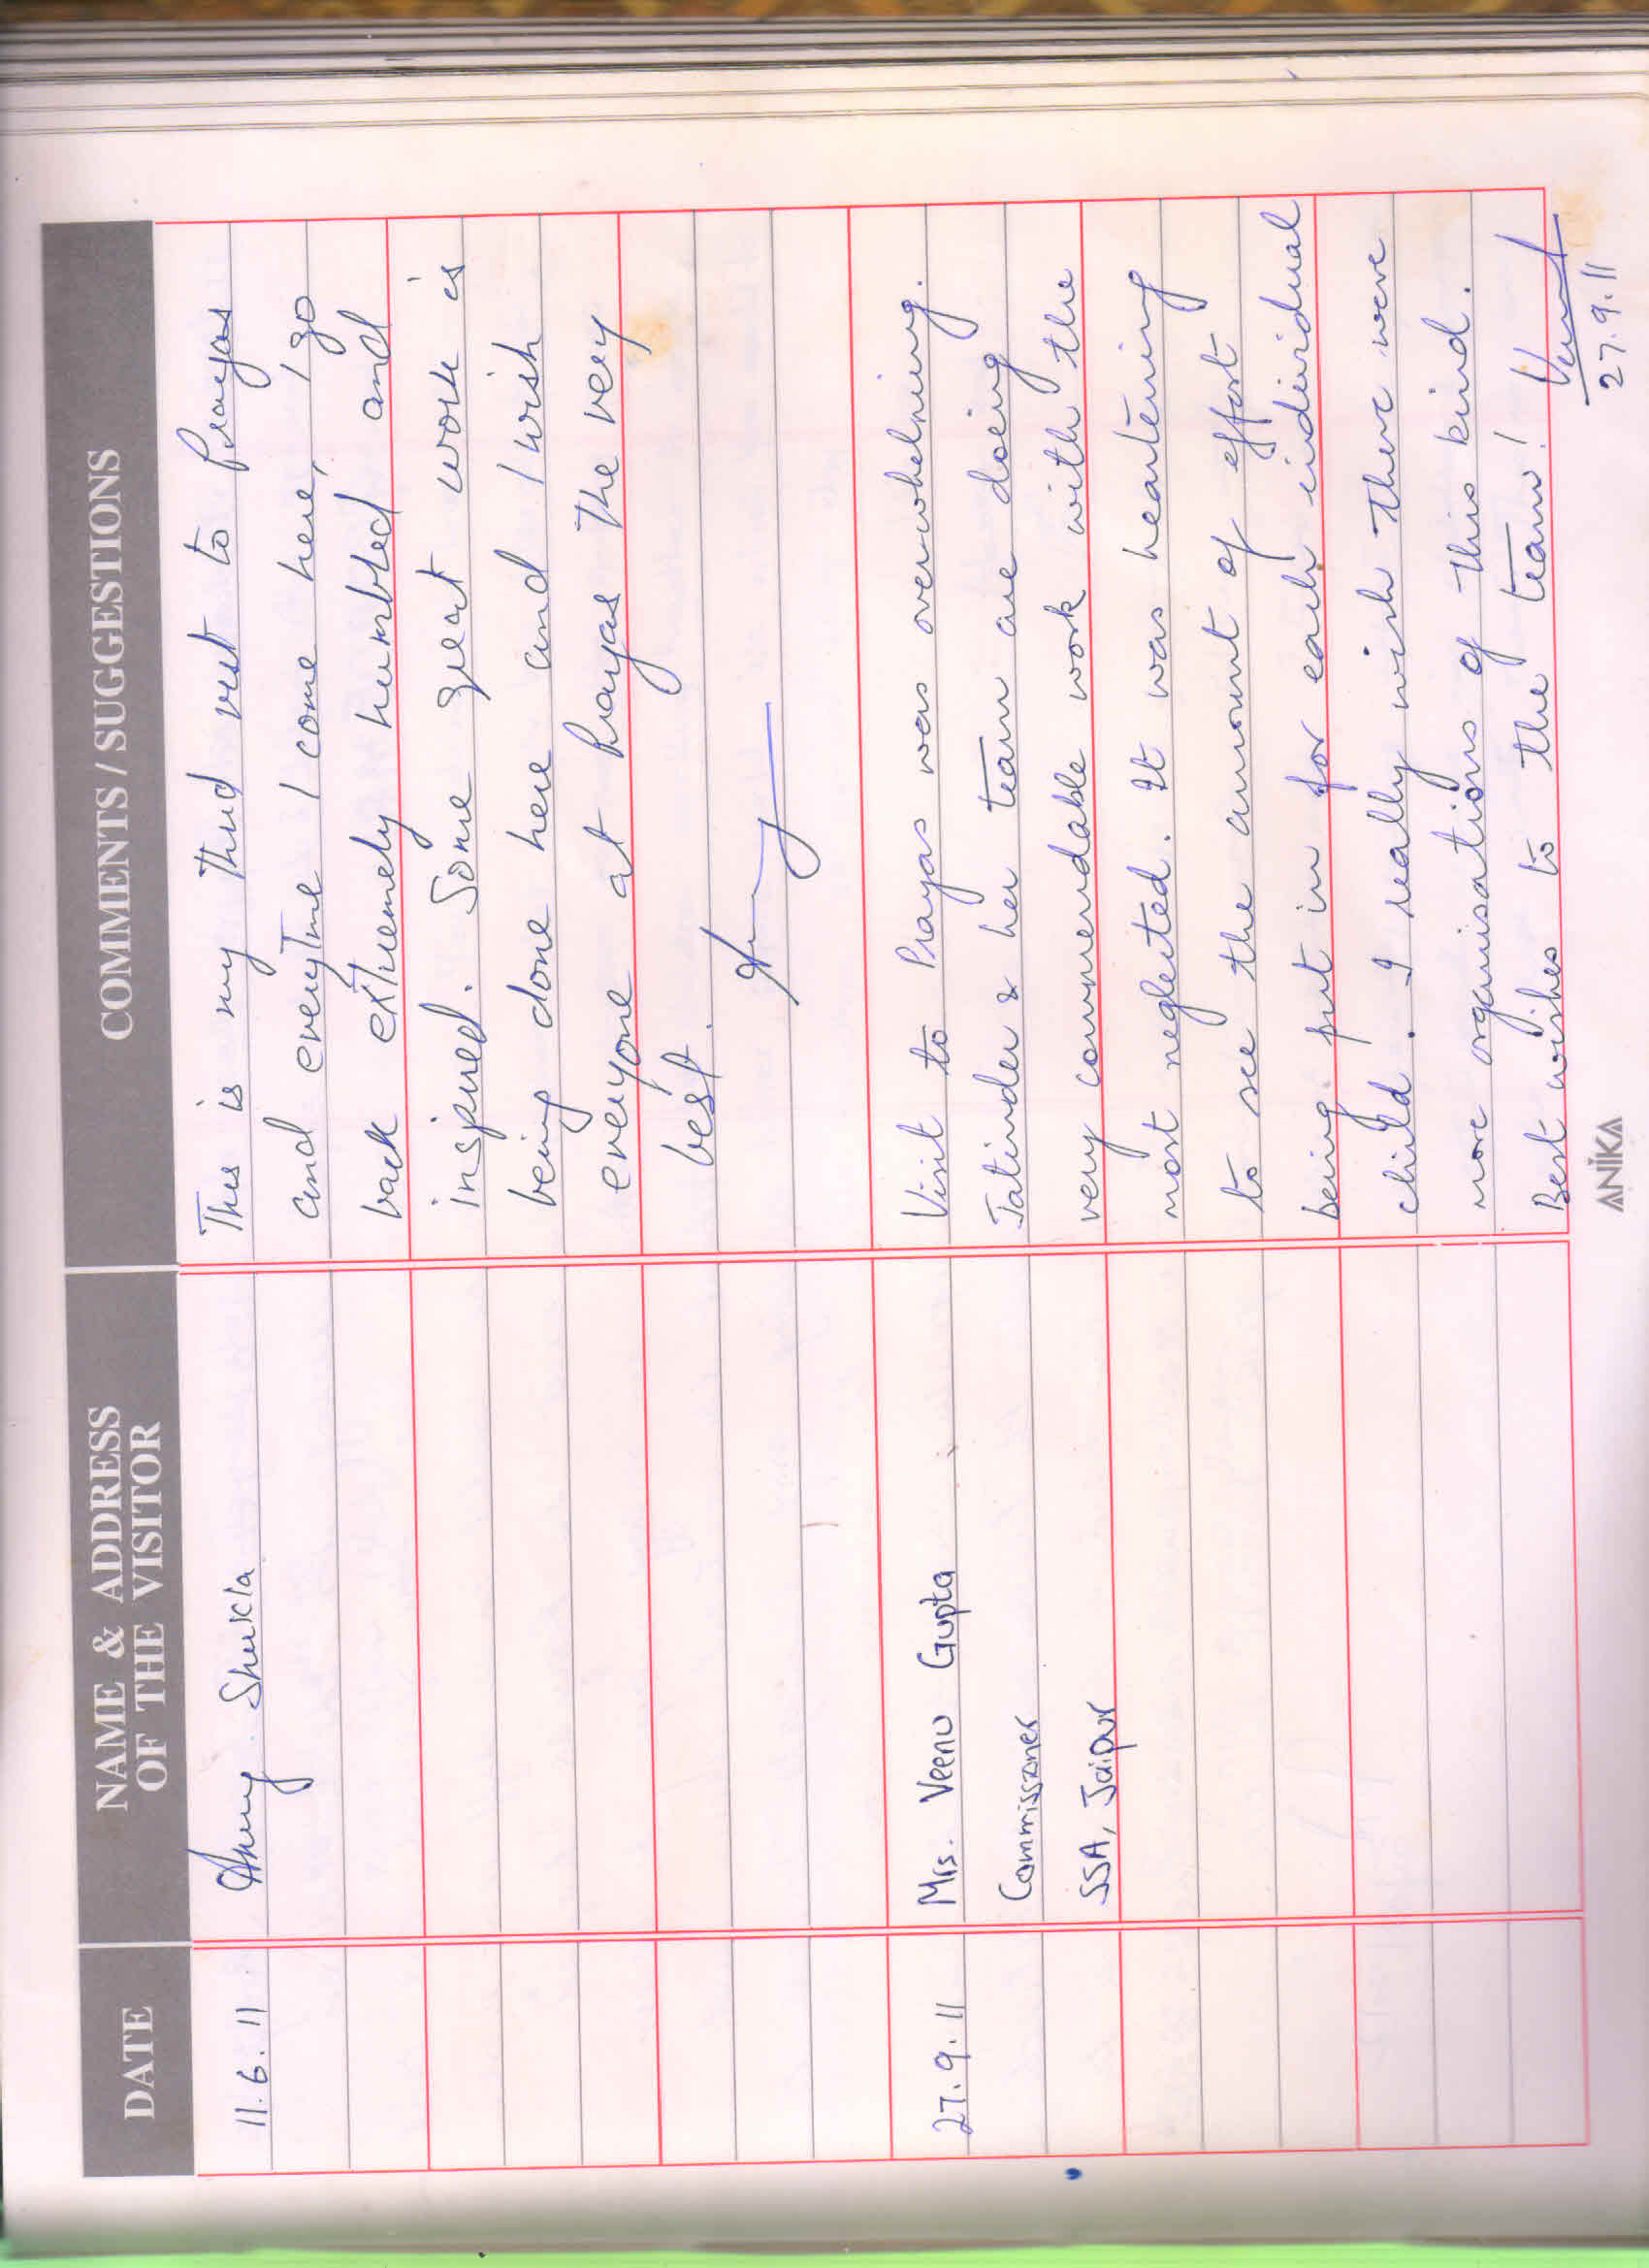 DATE
NAME & ADDRESS
OF THE VISITOR
COMMENTS / SUGGESTIONS
11.6.11
Shukla
This is my third visit to Prayas
and everytime I come here, I go
back extremely humbled and
inspired. Some great work is
being done here and I wish
everyone at Prayas the very
best.
27.9.11
Mrs. Veenu Gupta
Commissioner
SSA, Jaipur
Visit to Prayas was overwhelming.
Jatinder & her team are doing
very commendable work with the
most neglected. It was heartening
to see the amount of effort
being put in for each individual
child. I really wish there were
more organisations of this kind.
Best wishes to the team!
27.9.11
ANIKA